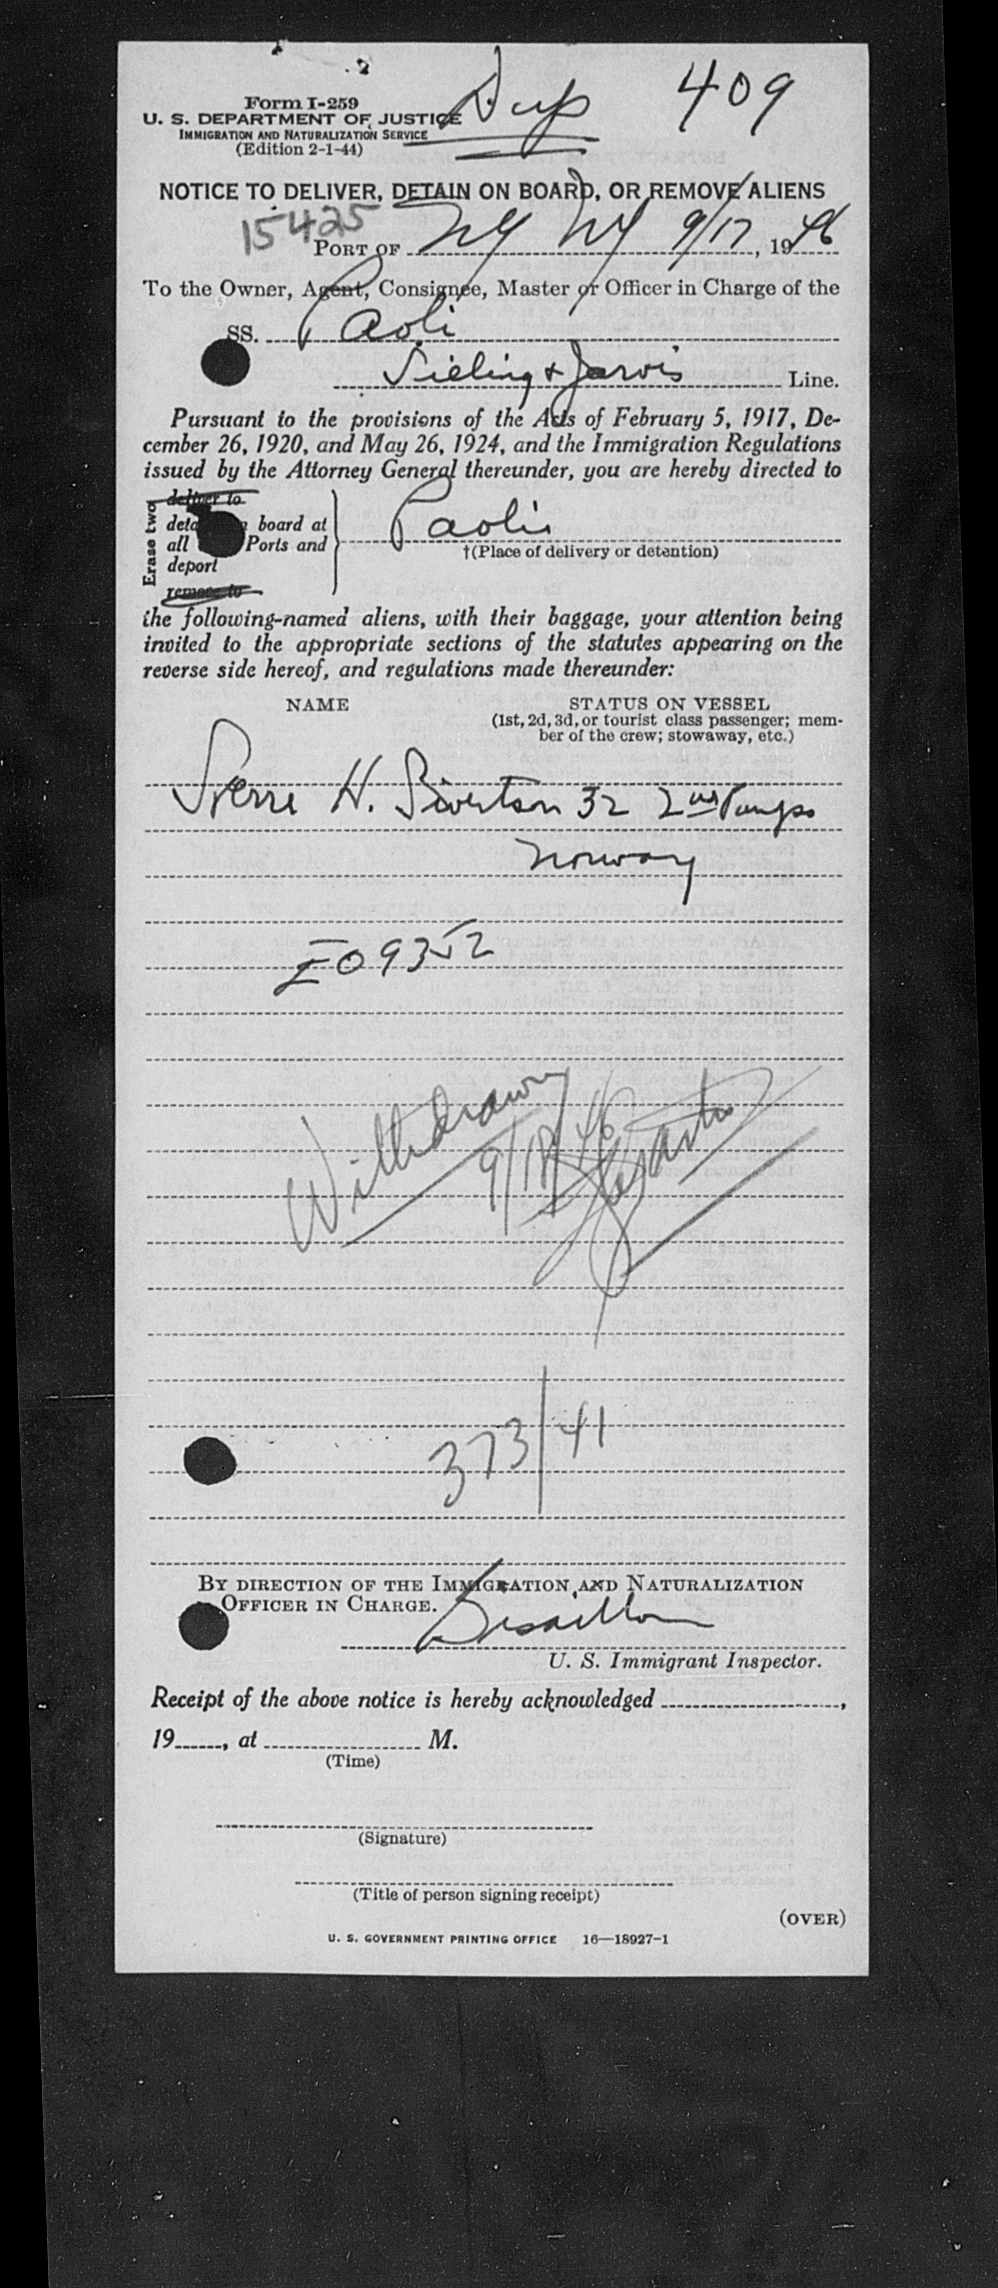 Dup 409
Form I-259
U. S. DEPARTMENT OF JUSTICE
IMMIGRATION AND NATURALIZATION SERVICE
(Edition 2-1-44)
NOTICE TO DELIVER, DETAIN ON BOARD, OR REMOVE ALIENS
15425
PORT OF NY NY 9/17, 1946
To the Owner, Agent, Consignee, Master or Officer in Charge of the
SS. Paoli
Sieling & Jarvis Line.
Pursuant to the provisions of the Acts of February 5, 1917, De-
cember 26, 1920, and May 26, 1924, and the Immigration Regulations
issued by the Attorney General thereunder, you are hereby directed to
Erase two
deliver to
board at
all Ports and
deport
remove to
Paoli
†(Place of delivery or detention)
the following-named aliens, with their baggage, your attention being
invited to the appropriate sections of the statutes appearing on the
reverse side hereof, and regulations made thereunder:
NAME STATUS ON VESSEL
(1st, 2d, 3d, or tourist class passenger; mem-
ber of the crew; stowaway, etc.)
Sverre H. Sivertson 32 2nd
Norway
E09352
Withdrawn
9/18/46
373/41
BY DIRECTION OF THE IMMIGRATION AND NATURALIZATION
OFFICER IN CHARGE.
U. S. Immigrant Inspector.
Receipt of the above notice is hereby acknowledged ,
19 , at M.
(Time)
(Signature)
(Title of person signing receipt)
(OVER)
U. S. GOVERNMENT PRINTING OFFICE 16—18927-1